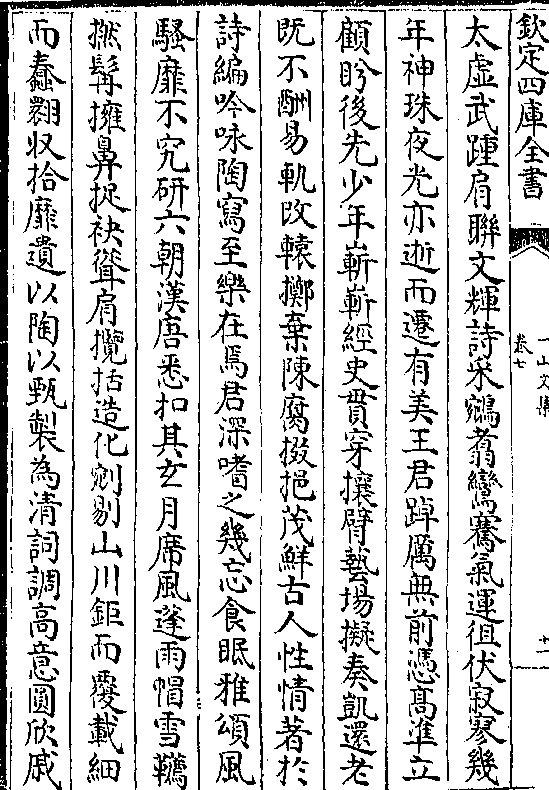 欽定四庫全書
一山文集
卷七
十一
太虛武踵肩聯文輝詩采鵷翥鸞騫氣運徂伏寂寥幾
年神珠夜光亦逝而遷有美王君踔厲無前憑高準立
顧盻後先少年嶄嶄經史貫穿攘臂藝場擬奏凱還老
旣不酬易軌改轅擲棄陳腐掇挹茂鮮古人性情著於
詩編吟咏陶寫至樂在焉君深嗜之幾忘食眠雅頌風
騷靡不究研六朝漢唐悉扣其玄月席風蓬雨帽雪韉
撚髯擁鼻捉袂聳肩攬括造化剜剔山川鉅而覆載細
而蠢翾收拾靡遺以陶以甄製為清詞調高意圓欣戚